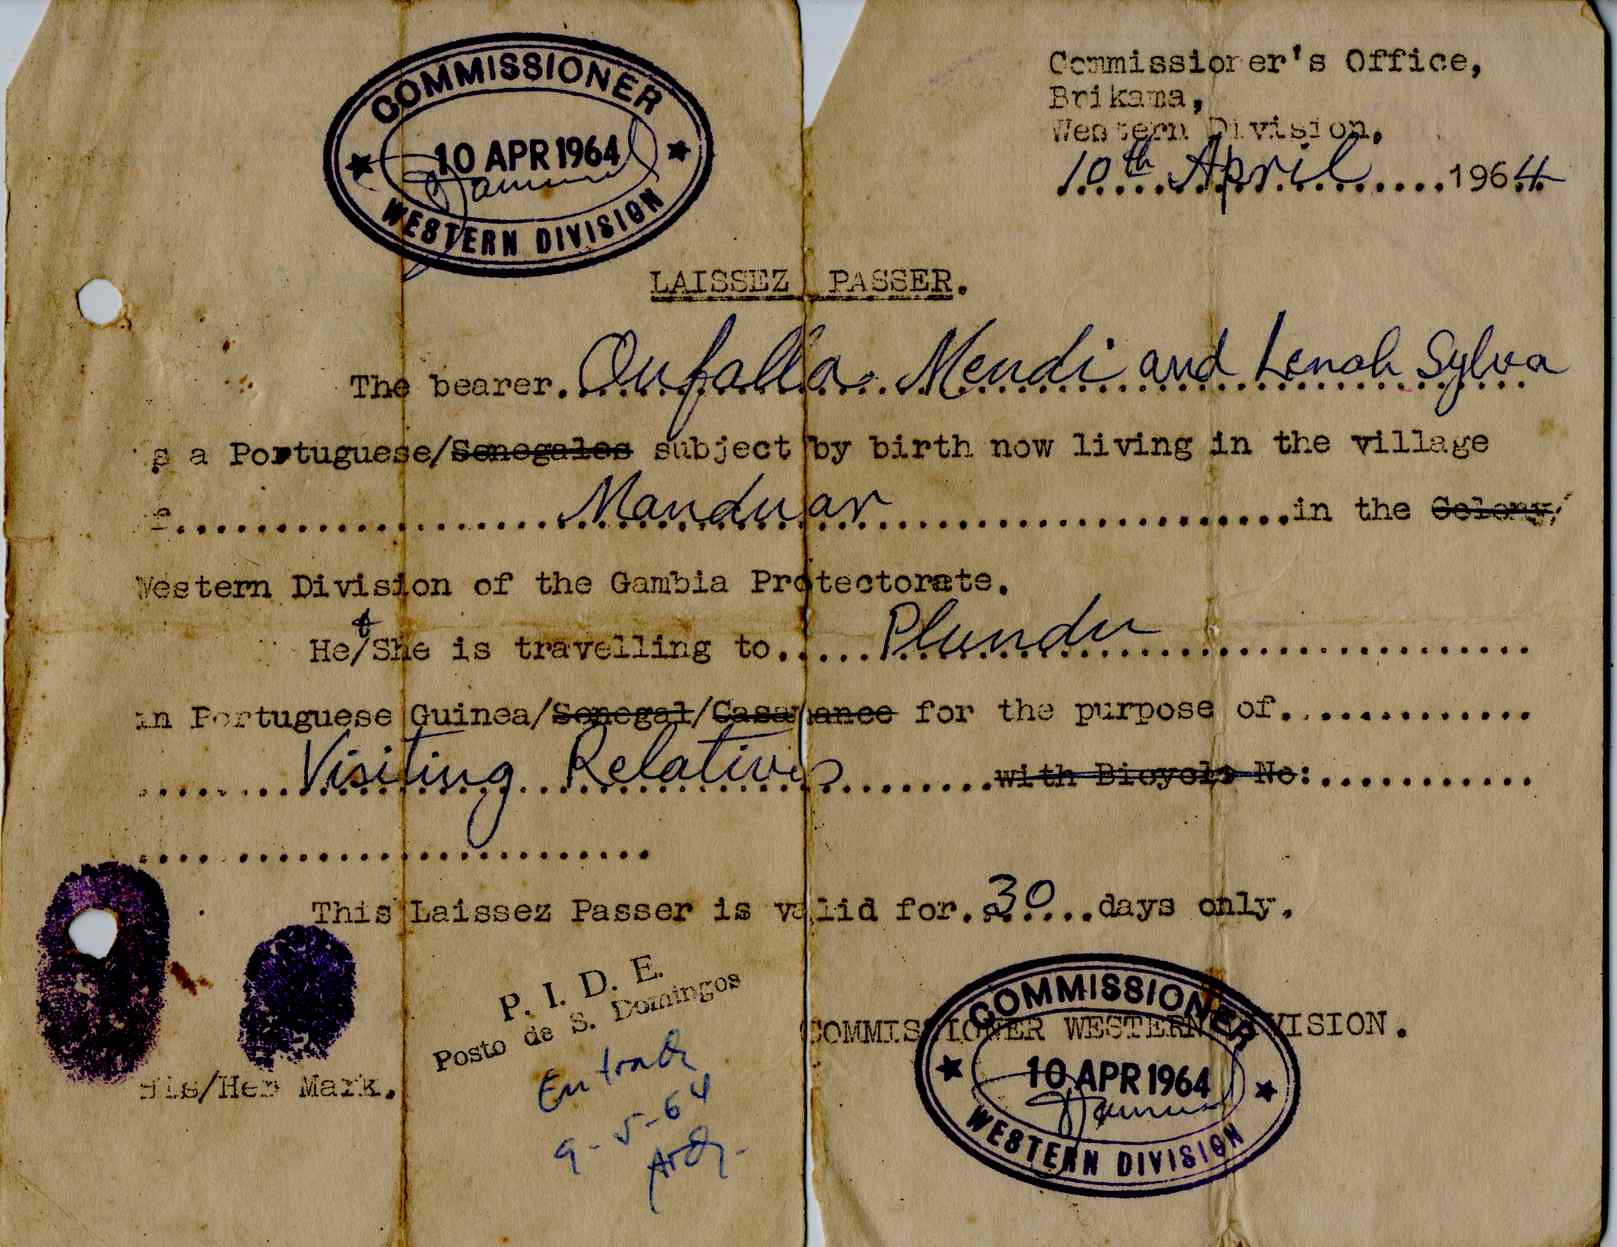 COMMISSIONER
10 APR 1964
WESTERN DIVISION
Commissioner's Office,
Brikama,
Western Division,
10th April 1964
LAISSEZ PASSER.
The bearer. Oufalla Mendi and Lenah Sylva
is a Portuguese/Senegales subject by birth now living in the village
Manduar in the Colony,
Western Division of the Gambia Protectorate.
He/She is travelling to Plundu
in Portuguese Guinea/Senegal/Casamance for the purpose of
Visiting Relatives with Bicycle No:
This Laissez Passer is valid for 30 days only.
P. I. D. E.
Posto de S. Domingos
Entrada
9-5-64
COMMISSIONER WESTERN DIVISION.
COMMISSIONER
10 APR 1964
WESTERN DIVISION
His/Her Mark.